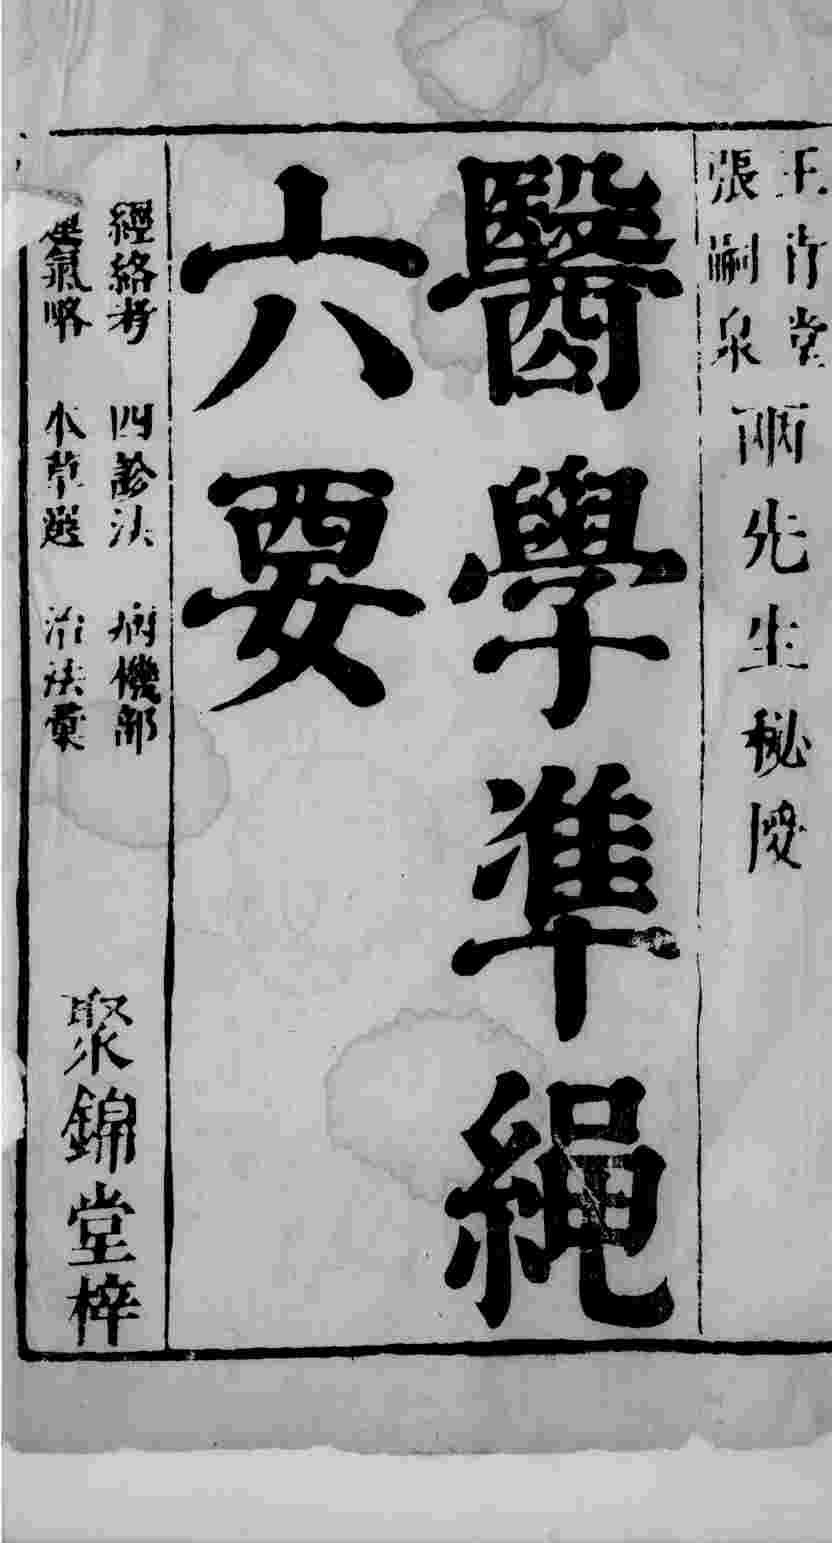 王肯堂
張嗣泉
兩先生秘授
醫學準繩
六要
經絡考 四診法 病機部
運氣略 本草選 治法彙
聚錦堂梓